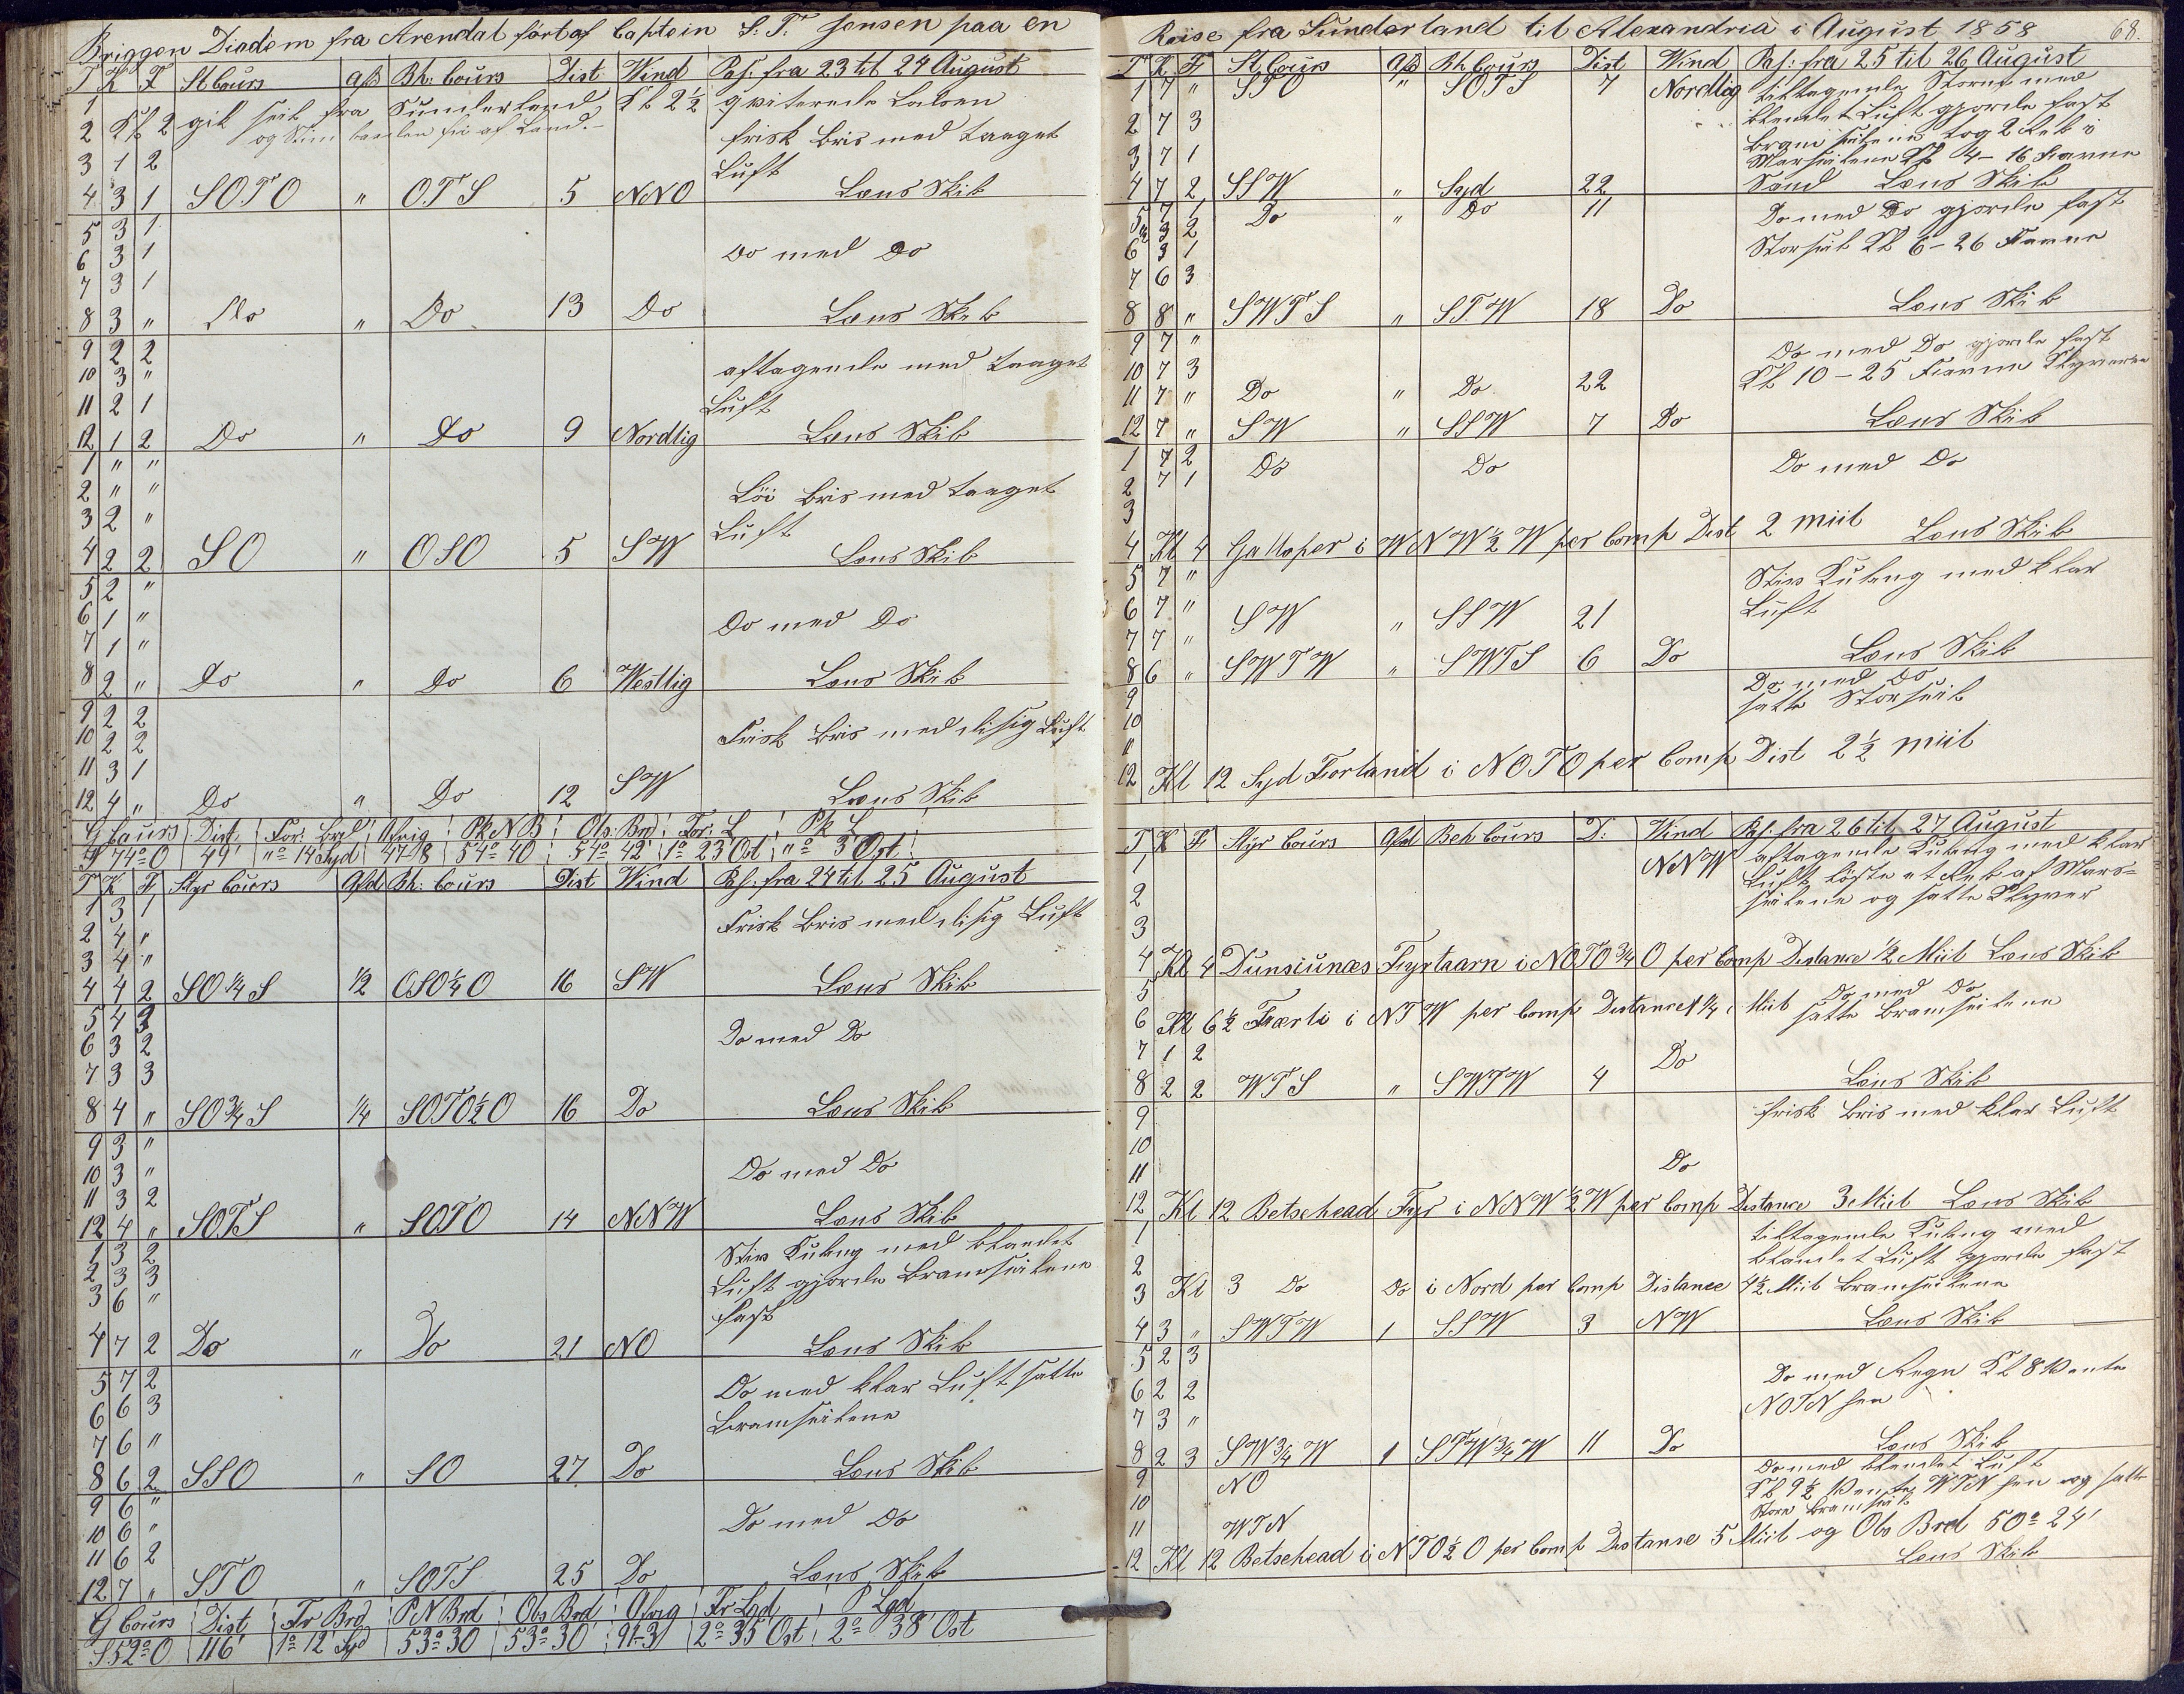 Briggen Diadem fra Arendal fört af Captein S. T. Jensen paa en
T K F St Cours Afd Bh: Cours Dist Wind Pas: fra 23 til 24 August
1 Kl 2 gik seil fra Sunderland, Kl 2½ qviterede Lodsen
2 frisk Bris med taaget
3 1 2 Luft
4 3 1 SOTO " OTS 5 NNO Læns Skib
5 3 1
6 3 1 Do med Do
7 3 1
8 3 " Do " Do 13 Do Læns Skib
9 2 2 aftagende med taaget
10 3 " Luft
11 2 1
12 1 2 Do " Do 9 Nordlig Læns Skib
1 " "
2 " " Löi Bris med taaget
3 2 " Luft
4 2 2 SO " OSO 5 SW Læns Skib
5 2 "
6 1 " Do med Do
7 1 "
8 2 " Do " Do 6 Westlig Læns Skib
9 2 2
10 2 2 Frisk Bris med disig Luft
11 3 1
12 4 " Do " Do 12 SW Læns Skib
G Cours Dist. For: Brd Afvig Pk N B Obs: Brd: For: L Pk L
N 74° O 49' "° 14 Syd 47-8 54° 40 54° 42' 1° 23 Ost "° 3 Ost
T K F Styr Cours Afd Bh: Cours Dist Wind Pas: fra 24 til 25 August
1 3 1 Frisk Bris med disig Luft
2 4 "
3 4 "
4 4 2 SO¼S ½ OSO¼O 16 SW Læns Skib
5 4 3
6 3 2 Do med Do
7 3 3
8 4 " SO¾S ¼ SOTO½O 16 Do Læns Skib
9 3 "
10 3 " Do med Do
11 3 2
12 4 " SOTS " SOTO 14 NNW Læns Skib
1 3 2 Stiv Kuling med blandet
2 3 3 Luft gjorde Bramseilene
3 6 " fast
4 7 2 Do " Do 21 NO Læns Skib
5 7 2 Do med klar Luft satte
6 6 3 Bramseilene
7 6 "
8 6 2 SSO " SO 27 Do Læns Skib
9 6 "
10 6 " Do med Do
11 6 2
12 7 " STO " SOTS 25 Do Læns Skib
G Cours Dist Fr Brd P N Brd Obs Brd Afvig Fr Lgd P Lgd
S 52° O 116' 1° 12' Syd 53° 30 53° 30' 91-3 2° 35' Ost 2° 38' Ost
Reise fra Sunderland til Alexandria i August 1858 68.
T K F St Cours Afd Bh Cours Dist Wind Pas: fra 25 til 26 August
1 7 " STO " SOTS 7 Nordlig tiltagende Storm med
2 7 3 blandet Luft gjorde fast
Bramseilene tog 2 Reb i
3 7 1 Marseilene Kl 4 - 16 Favne
4 7 2 SSW " Syd 22 Sand Læns Skib
5 7 1 Do " Do 11 Do med Do gjorde fast
6 3 1 Storseil Kl 6 - 26 Favne
7 6 3
8 8 " SWTS " STW 18 Do Læns Skib
9 7 " Do med Do gjorde fast
10 7 3 Kl 10 - 25 Favne Klyveren
11 7 " Do " Do 22
12 7 " SW " SSW 7 Do Læns Skib
1 7 2 Do Do Do med Do
2 7 1
3
4 Kl 4 Galloper i WNW½W per Comp Dist 2 Miil Læns Skib
5 7 " Stiv Kuling med klar
6 7 " SW " SSW 21 Luft
7 7 "
8 6 " SWTW " SWTS 6 Do Læns Skib
9 Do med Do
10 satte Storseil
11
12 Kl 12 Syd Forland i NOTO per Comp Dist 2½ miil
T K F Styr Cours Afd Beh Cours D: Wind Pas: fra 26 til 27 August
1 NNW aftagende Kuling med klar
Luft löste et Reb af Mars=
2 seilene og satte Klyver
3
4 Kl 4 Dunsiunæs Fyrtaarn i NOTO¾O per Comp Distance ½ Miil Læns Skib
5 Do med Do
6 Kl 6½ Færli i NTW per Comp Distance 1¼ Miil satte Bramseilene
7 1 2 Do
8 2 2 WTS " SWTW 4 Læns Skib
9 frisk Bris med klar Luft
10
11 Do
12 Kl 12 Betschead Fyr i NNW½W per Comp Distance 3 Miil Læns Skib
1 tiltagende Kuling med
2 blandet Luft gjorde fast
3 Kl 3 Do Do i Nord per Comp Distance 4½ Miil Bramseilene
4 3 " SWTW 1 SSW 3 NW Læns Skib
5 2 3
6 2 2 Do med Regn Kl 8 vente
7 3 " NOTN hen
8 2 3 SW¾W 1 STW¾W 11 Do Læns Skib
9 NO Do med blandet Luft
10 Kl 9½ vente WTN hen og satte
11 WTN Store Bramseil
12 Kl 12 Betsehead i NTO½O per Comp Distanse 5 Miil og Obs Brd 50° 24'
Læns Skib